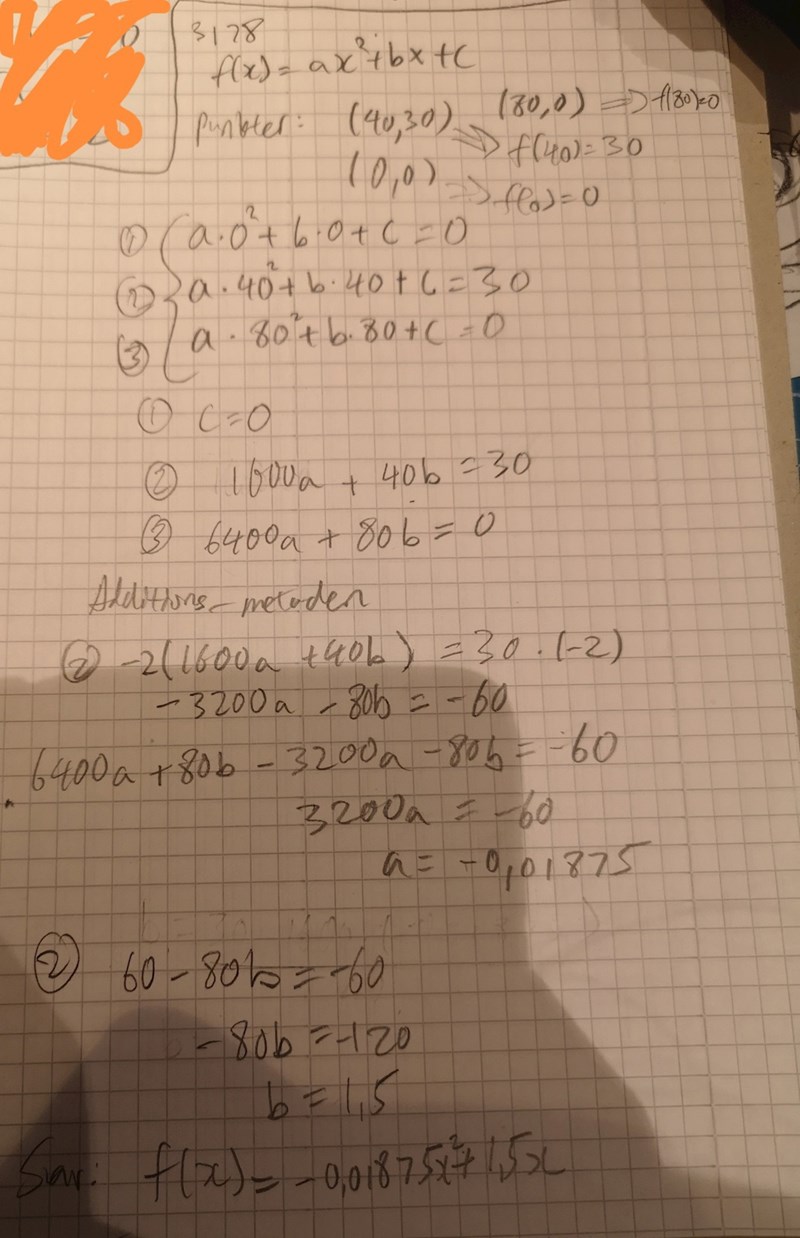 3178
f(x) = ax²+bx+c
Punkter: (40,30) (80,0) => f(80)=0
=> f(40)=30
(0,0) => f(0)=0
① a·0²+b·0+c=0
② a·40²+b·40+c=30
③ a·80²+b·80+c=0
① c=0
② 1600a + 40b = 30
③ 6400a + 80b = 0
Additions-metoden
② -2(1600a +40b) = 30·(-2)
-3200a - 80b = -60
6400a +80b - 3200a - 80b = -60
3200a = -60
a = -0,01875
② 60-80b = -60
-80b = -120
b = 1,5
Svar: f(x) = -0,01875x²+1,5x